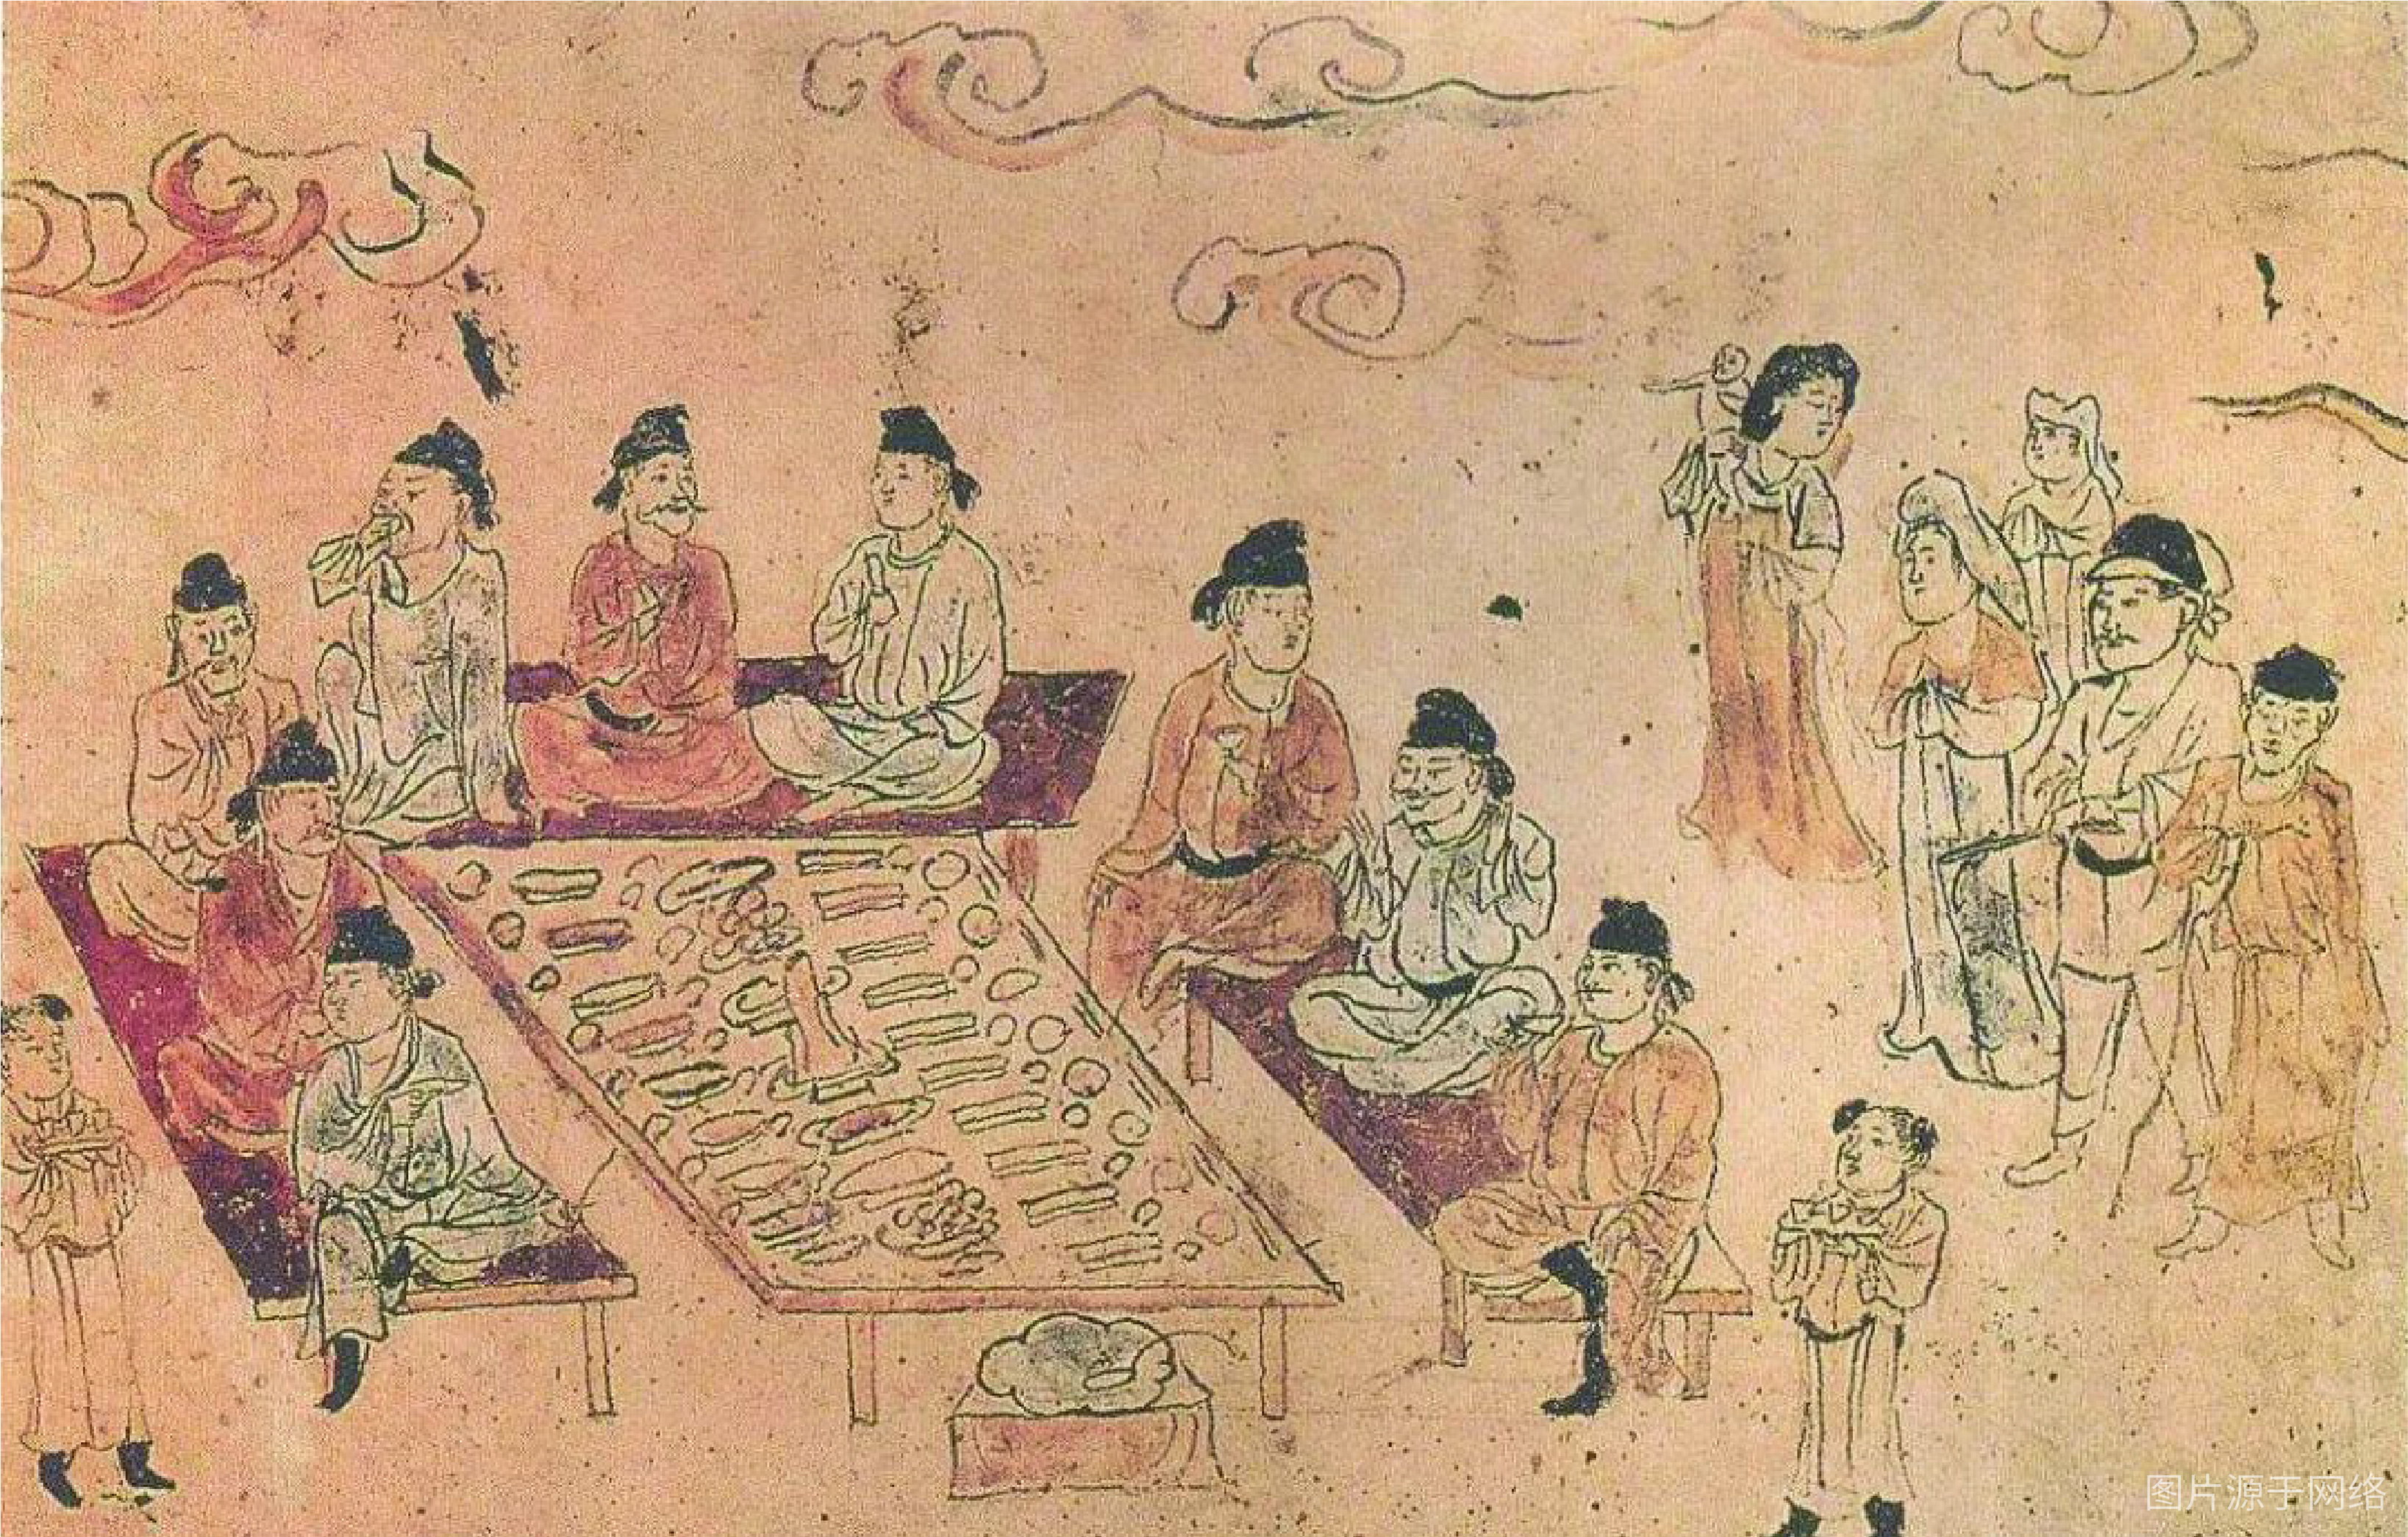 图片源于网络